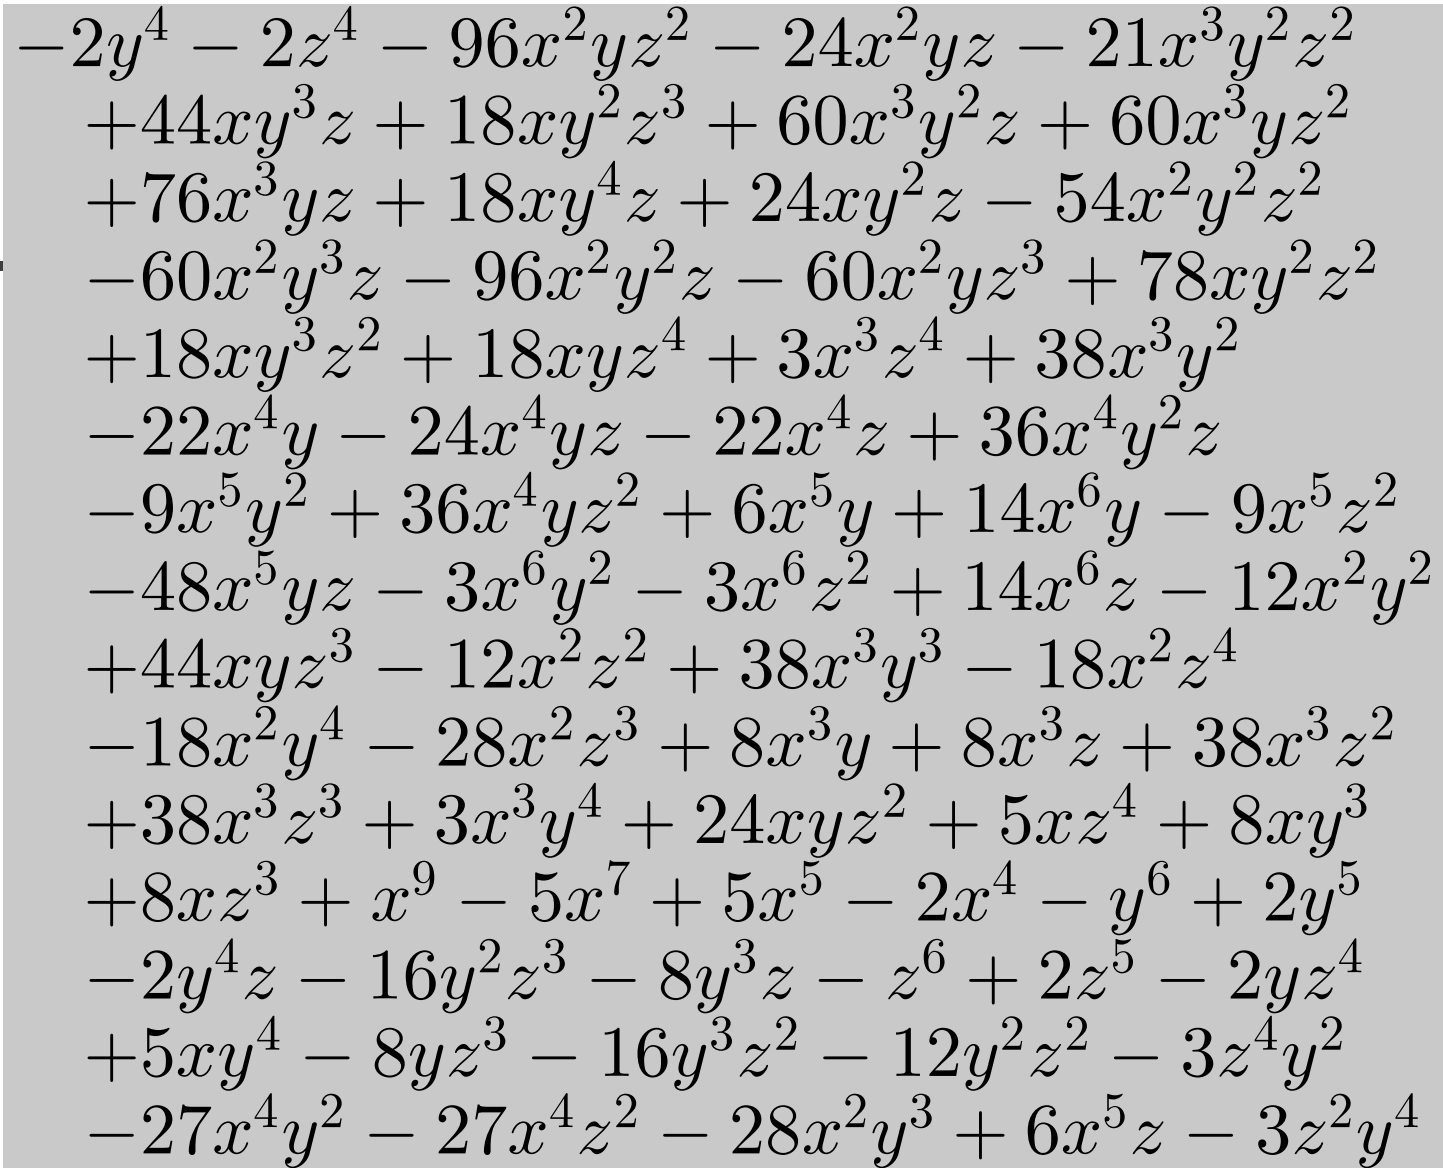 −2y⁴ − 2z⁴ − 96x²yz² − 24x²yz − 21x³y²z²
+44xy³z + 18xy²z³ + 60x³y²z + 60x³yz²
+76x³yz + 18xy⁴z + 24xy²z − 54x²y²z²
−60x²y³z − 96x²y²z − 60x²yz³ + 78xy²z²
+18xy³z² + 18xyz⁴ + 3x³z⁴ + 38x³y²
−22x⁴y − 24x⁴yz − 22x⁴z + 36x⁴y²z
−9x⁵y² + 36x⁴yz² + 6x⁵y + 14x⁶y − 9x⁵z²
−48x⁵yz − 3x⁶y² − 3x⁶z² + 14x⁶z − 12x²y²
+44xyz³ − 12x²z² + 38x³y³ − 18x²z⁴
−18x²y⁴ − 28x²z³ + 8x³y + 8x³z + 38x³z²
+38x³z³ + 3x³y⁴ + 24xyz² + 5xz⁴ + 8xy³
+8xz³ + x⁹ − 5x⁷ + 5x⁵ − 2x⁴ − y⁶ + 2y⁵
−2y⁴z − 16y²z³ − 8y³z − z⁶ + 2z⁵ − 2yz⁴
+5xy⁴ − 8yz³ − 16y³z² − 12y²z² − 3z⁴y²
−27x⁴y² − 27x⁴z² − 28x²y³ + 6x⁵z − 3z²y⁴